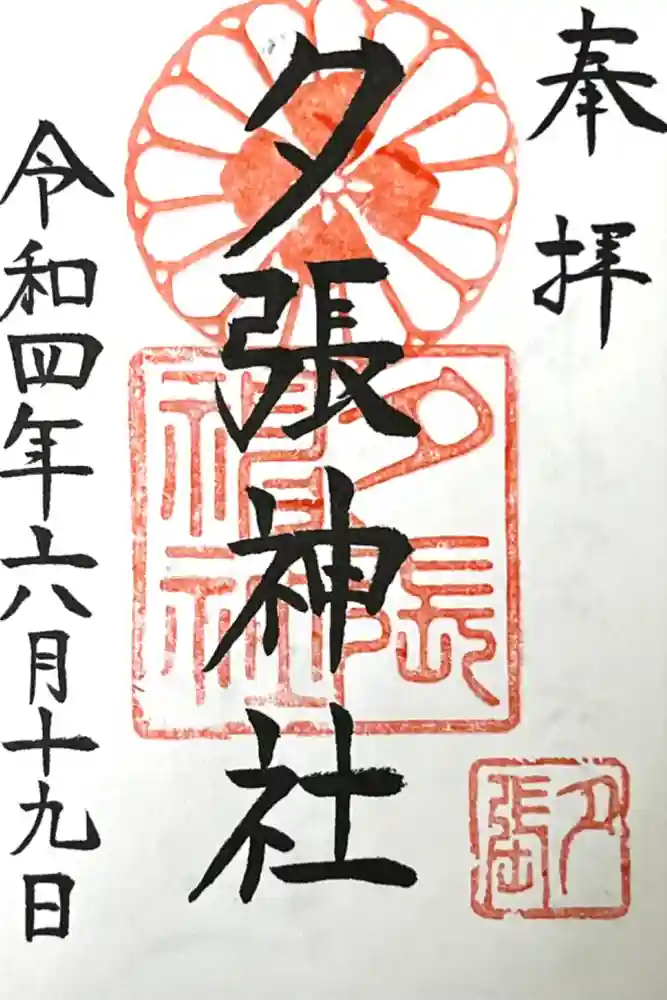 奉拝
夕張神社
令和四年六月十九日
夕張
神社